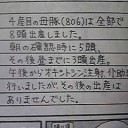 4産目の母豚(806)は全部で
8頭出産しました。
朝の確認時に5頭、
その後昼までに3頭出産。
午後からオキシトシン注射、介助
行いましたが、その後の出産は
ありませんでした。